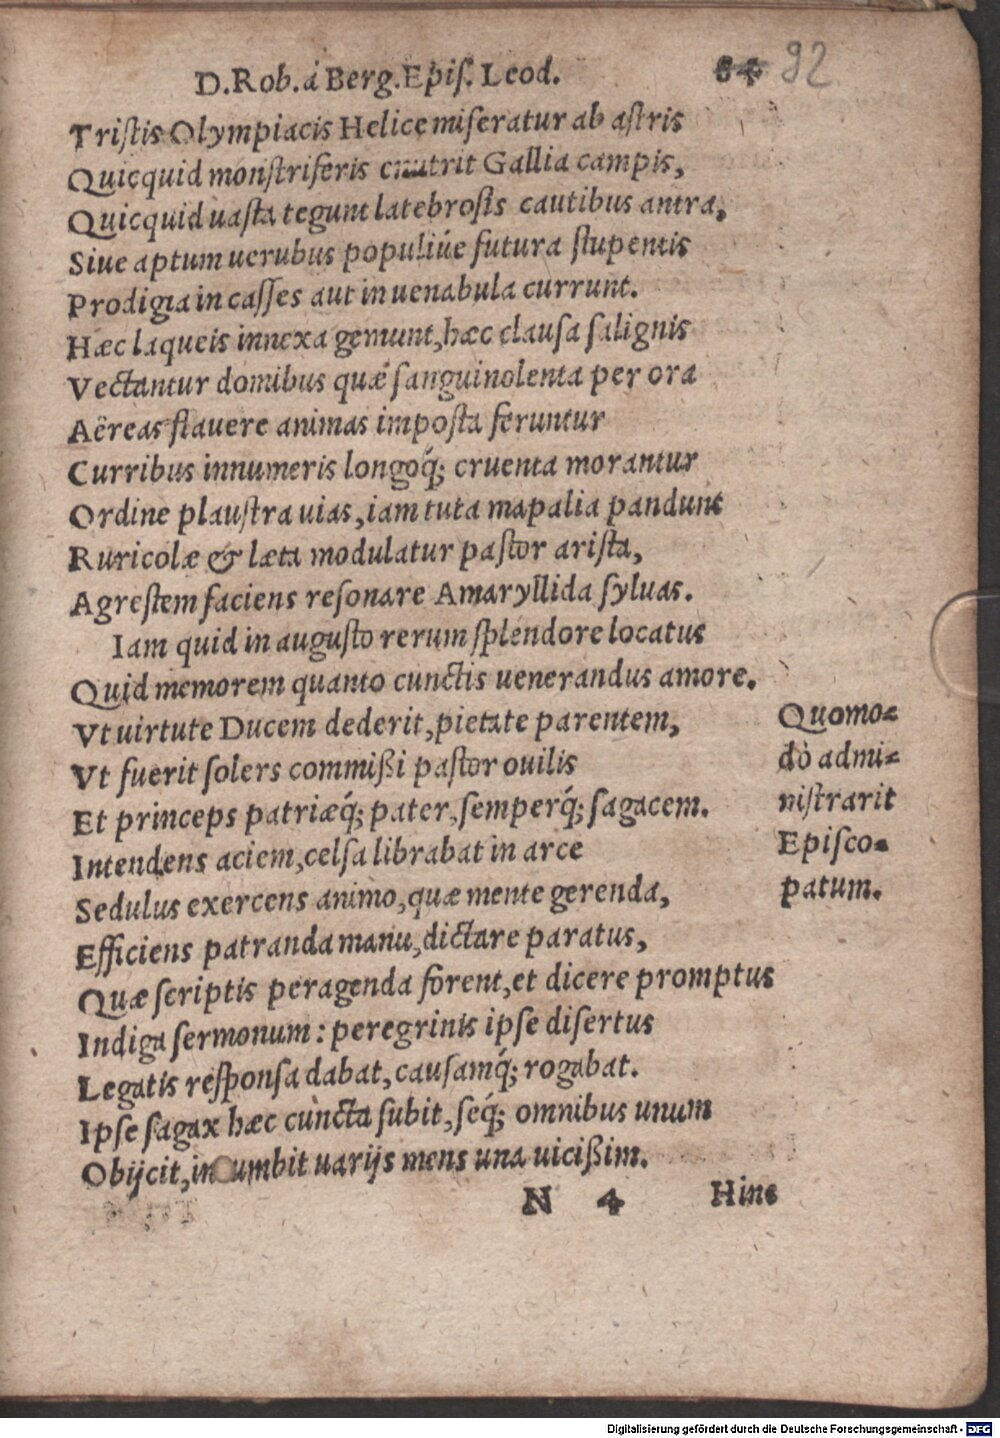 D. Rob. á Berg. Epiſ. Leod. 84 92
Triſtis Olympiacis Helice miſeratur ab aſtris
Quicquid monſtriferis enutrit Gallia campis,
Quicquid uaſta tegunt latebroſis cautibus antra,
Siue aptum uerubus populiúe futura ſtupentis
Prodigia in caſſes aut in uenabula currunt.
Hæc laqueis innexa gemunt, hæc clauſa ſalignis
Vectantur domibus quæ ſanguinolenta per ora
Aëreas flauere animas impoſta feruntur
Curribus innumeris longoq́; cruenta morantur
Ordine plauſtra uias, iam tuta mapalia pandunt
Ruricolæ & læta modulatur paſtor ariſta,
Agreſtem faciens reſonare Amaryllida ſyluas.
Iam quid in auguſto rerum ſplendore locatus
Quid memorem quanto cunctis uenerandus amore.
Vt uirtute Ducem dederit, pietate parentem,
Vt fuerit ſolers commißi paſtor ouilis
Et princeps patriæq́; pater, ſemperq́; ſagacem.
Intendens aciem, celſa librabat in arce
Sedulus exercens animo, quæ mente gerenda,
Efficiens patranda manu, dictare paratus,
Quæ ſcriptis peragenda forent, et dicere promptus
Indiga ſermonum: peregrinis ipſe diſertus
Legatis reſponſa dabat, cauſamq́; rogabat.
Ipſe ſagax hæc cuncta ſubit, ſeq́; omnibus unum
Obijcit, incumbit uarijs mens una uicißim.
Quomo-
dò admi-
niſtrarit
Epiſco-
patum.
N 4 Hinc
Digitalisierung gefördert durch die Deutsche Forschungsgemeinschaft - DFG